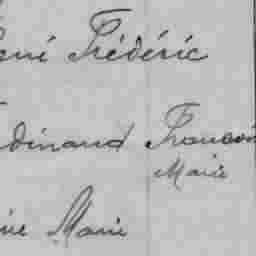 ené Frédéric
dinand François
Marie
ine Marie